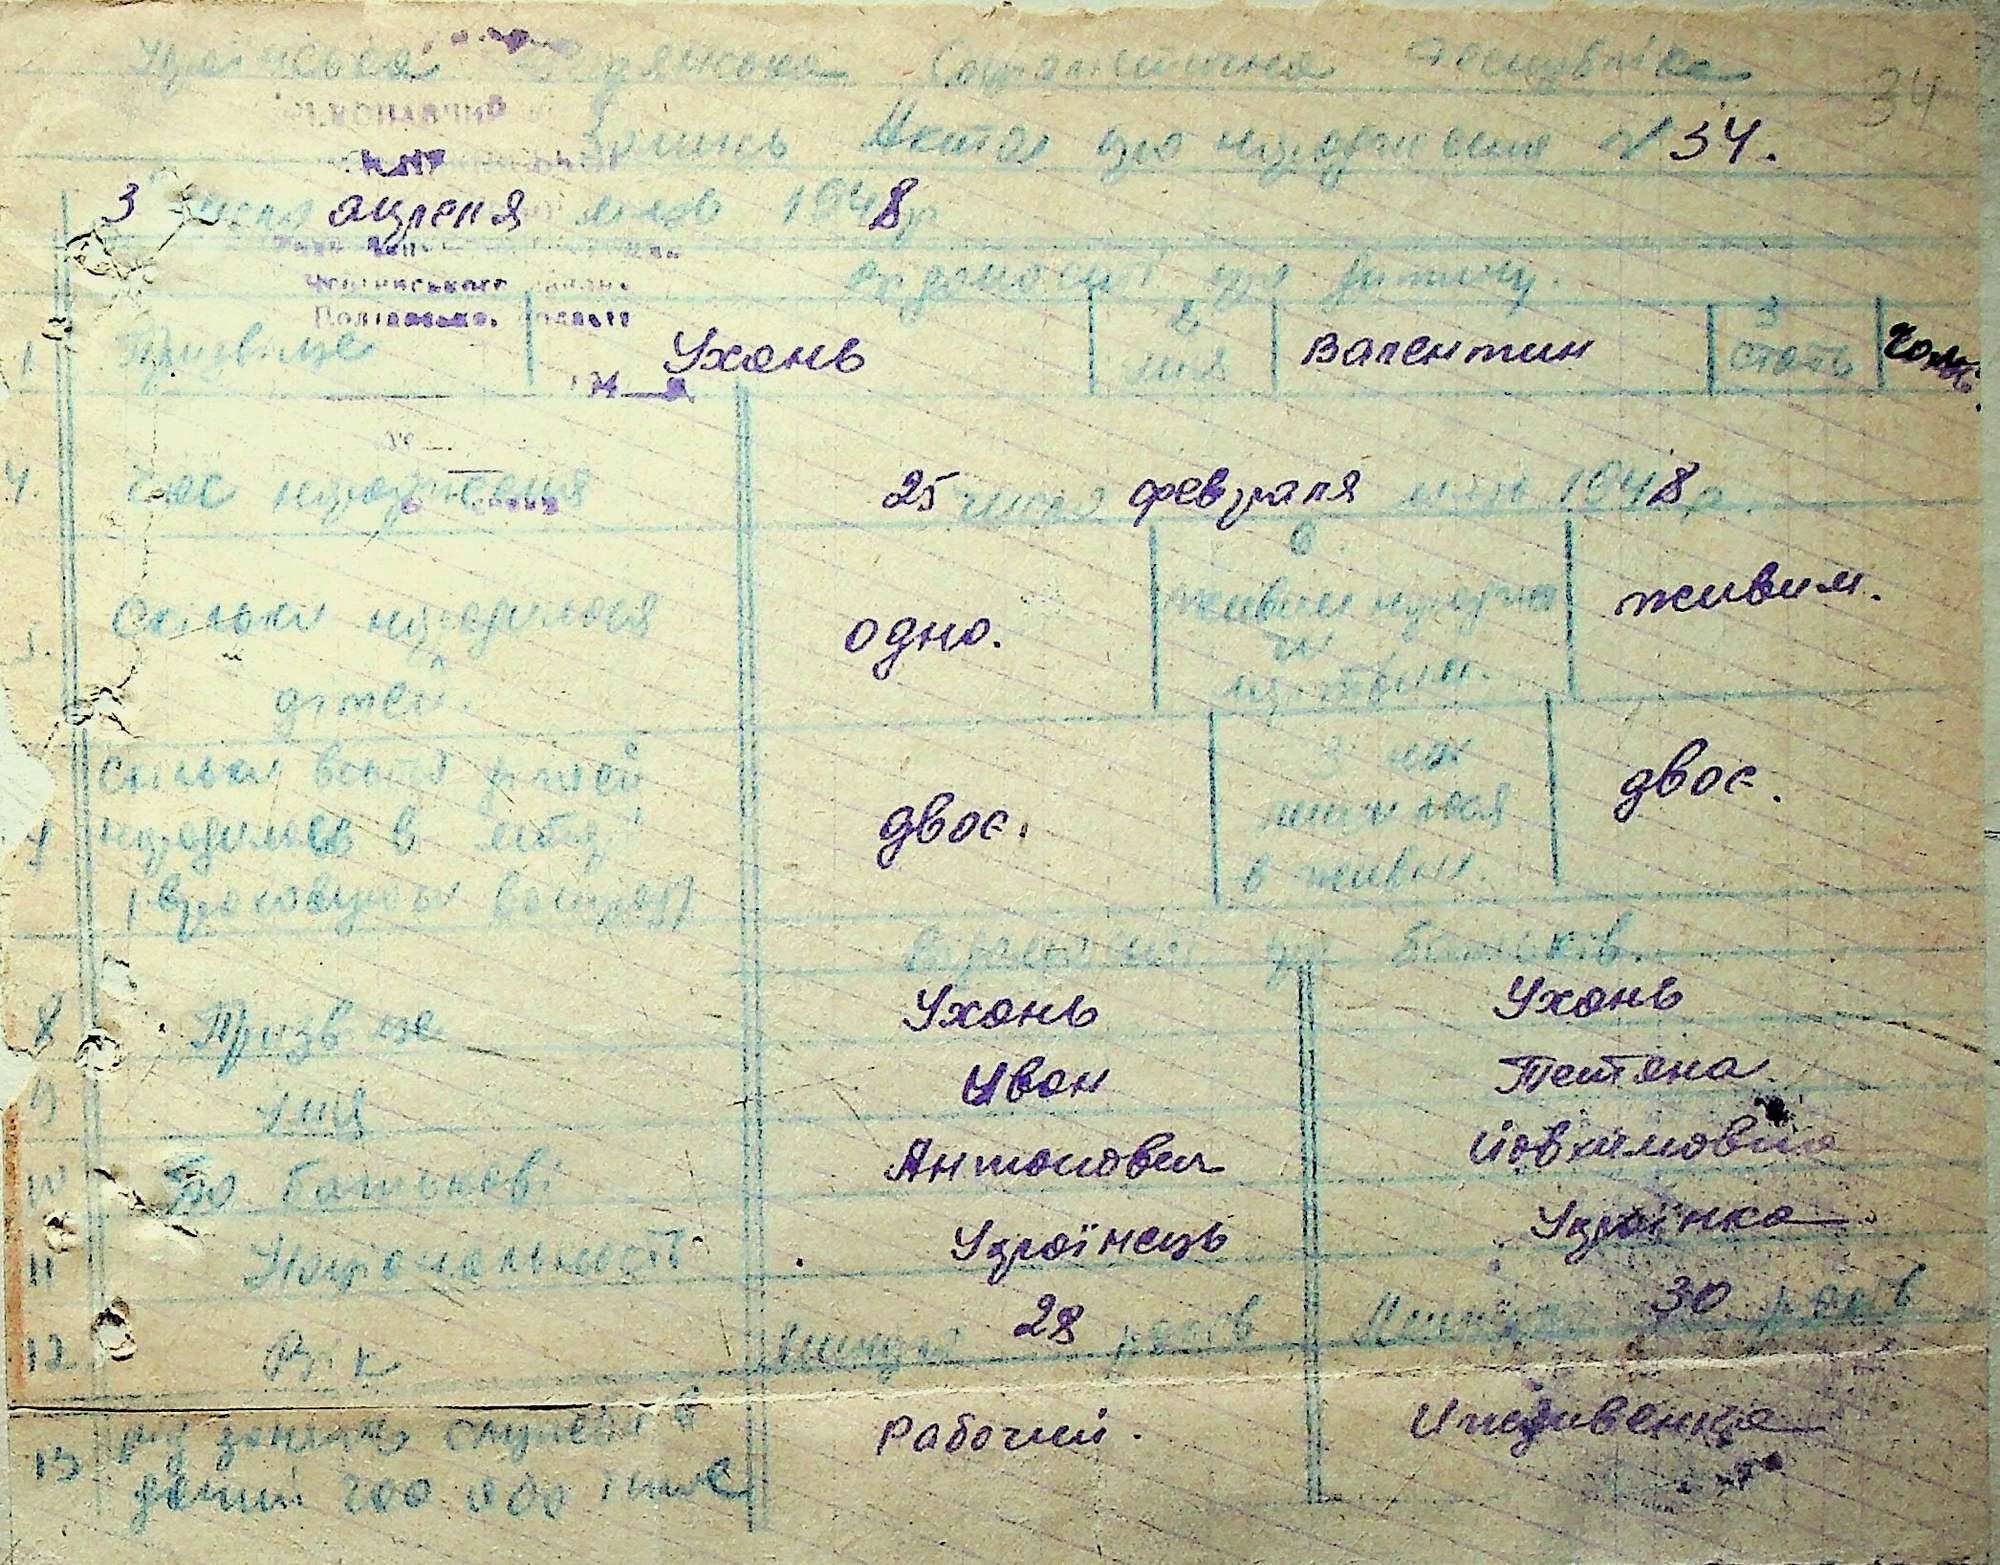 Українська Радянська Соціалістична Республіка
34
Запись Акта про народження № 34.
3 числа апреля м-ця 1948 р
відомості про дитину.
1 Призвище Ухань 2 имя Валентин 3 стать
Чутівського
Полтавсько.
4. Час народження 25 числа февраля м-ця 1948 р.
5. Скільки народилося дітей. одно. 6. живим народил. чи мертвим. живим.
Скільки всього дітей
народилось в матері двоє. З них лишилося в живих. двоє.
Відомості про батьків.
8 Призвище Ухань Ухань
9 Імя Иван Тетяна
10 По батькові Антонович Йовхимовна
11 Национальность Українець Українка
12 Вік минуло 28 років Минуло 30 років
13 рід занять служба в Рабочий. Иждивенка
даний час або інше